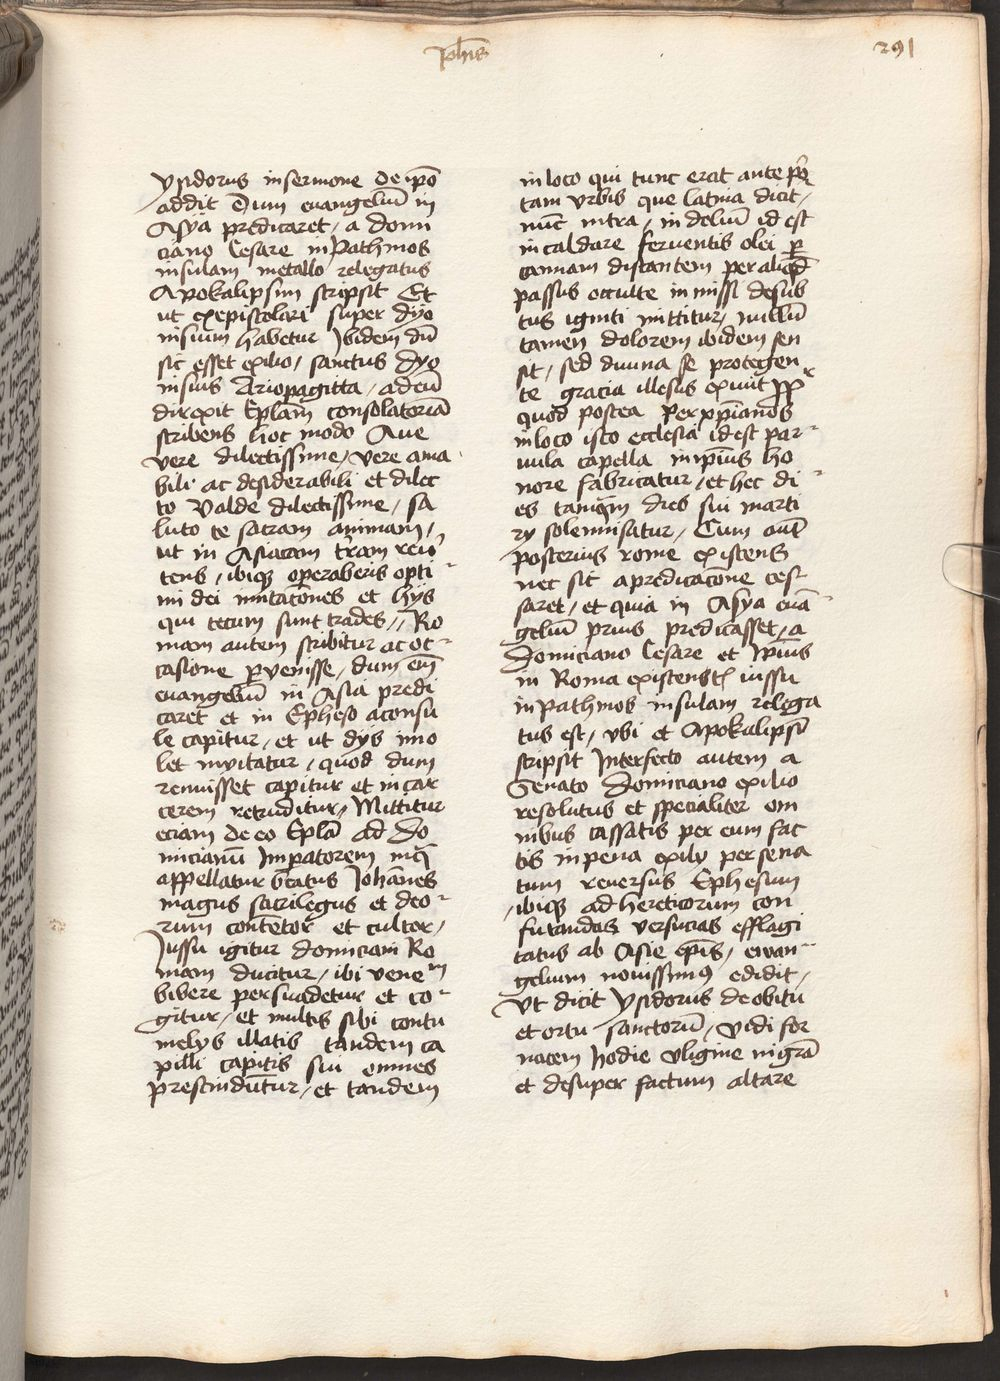 Johis
291
ysidorus in sermone de ipo
addit Dum euangeliu in
Asya predicaret / a domi
ciano Cesare in Pathmos
insulam metallo relegatus
Apokalipsim scripsit Et
ut ex epistolari super dyo
nisium habetur Ibidem du
sic esset exilio / sanctus dyo
nisius Ariopagitta / ad eu
direxit Eplam consolatoria
scribens hoc modo Aue
vere dilectissime / vere ama
bili ac desiderabili et dilec
to Valde dilectissime / sa
luto te sacram animam /
ut in Asiacam tram reu
tens / ibiq operaberis opti
mi dei imitacones et hijs
qui tecum sunt trades // Ro
mam autem scribitur ac oc
casione pvenisse / dum em
euangeliu in Asia predi
caret et in Epheso a consu
le capitur / et ut dys imo
let inuitatur / quod dum
renuisset capitur et in car
cerem retruditur / Mittitur
eciam de eo Epla ad do
micianu Impatorem in q
appellatur btatus Johanes
magus sacrilegus et deo
rum contetor et cultor /
Jussu igitur domiciani Ro
mam ducitur / ibi venem
bibere persuadetur et co
gitur / et multis sibi contu
melys illatis tandem ca
pilli capitis sui omnes
prescinduntur / et tandem
in loco qui tunc erat ante por
tam vrbis que latina dicit /
nuc intra / in deliu id est
in caldare feruentis olei p
cannam distantem per aliqd
passus occulte inmissi desub
tus igniti mittitur / nullu
tamen dolorem ibidem sen
sit / sed diuina se protegen
te gracia illesus exiuit ppr
quod postea per xpianos
in loco isto ecclesia id est par
uula capella in ipius ho
nore fabricatur / et hec di
es tanqm dies sui marti
ry solemnisatur / Cum aut
posterius rome existens
nec sic a predicacone ces
saret / et quia in Asya eua
geliu prius predicasset / a
Domiciano Cesare et ipius
in Roma existenstl iussu
in pathmos insulam relega
tus est / vbi et Apokalipsi
scripsit Interfecto autem a
Senato Domiciano exilio
resolutus et specialiter om
nibus cassatis per eum fac
tis in pena exily per sena
tum reuersus Ephesum
/ ibiq ad hereticorum con
futandas versucias efflagi
tatus ab Asie epis / ewan
gelium nouissimus edidit /
Vt dicit ysidorus de obitu
et ortu sanctoru / Vidi for
nacem hodie vligine nigra
et desuper factum altare